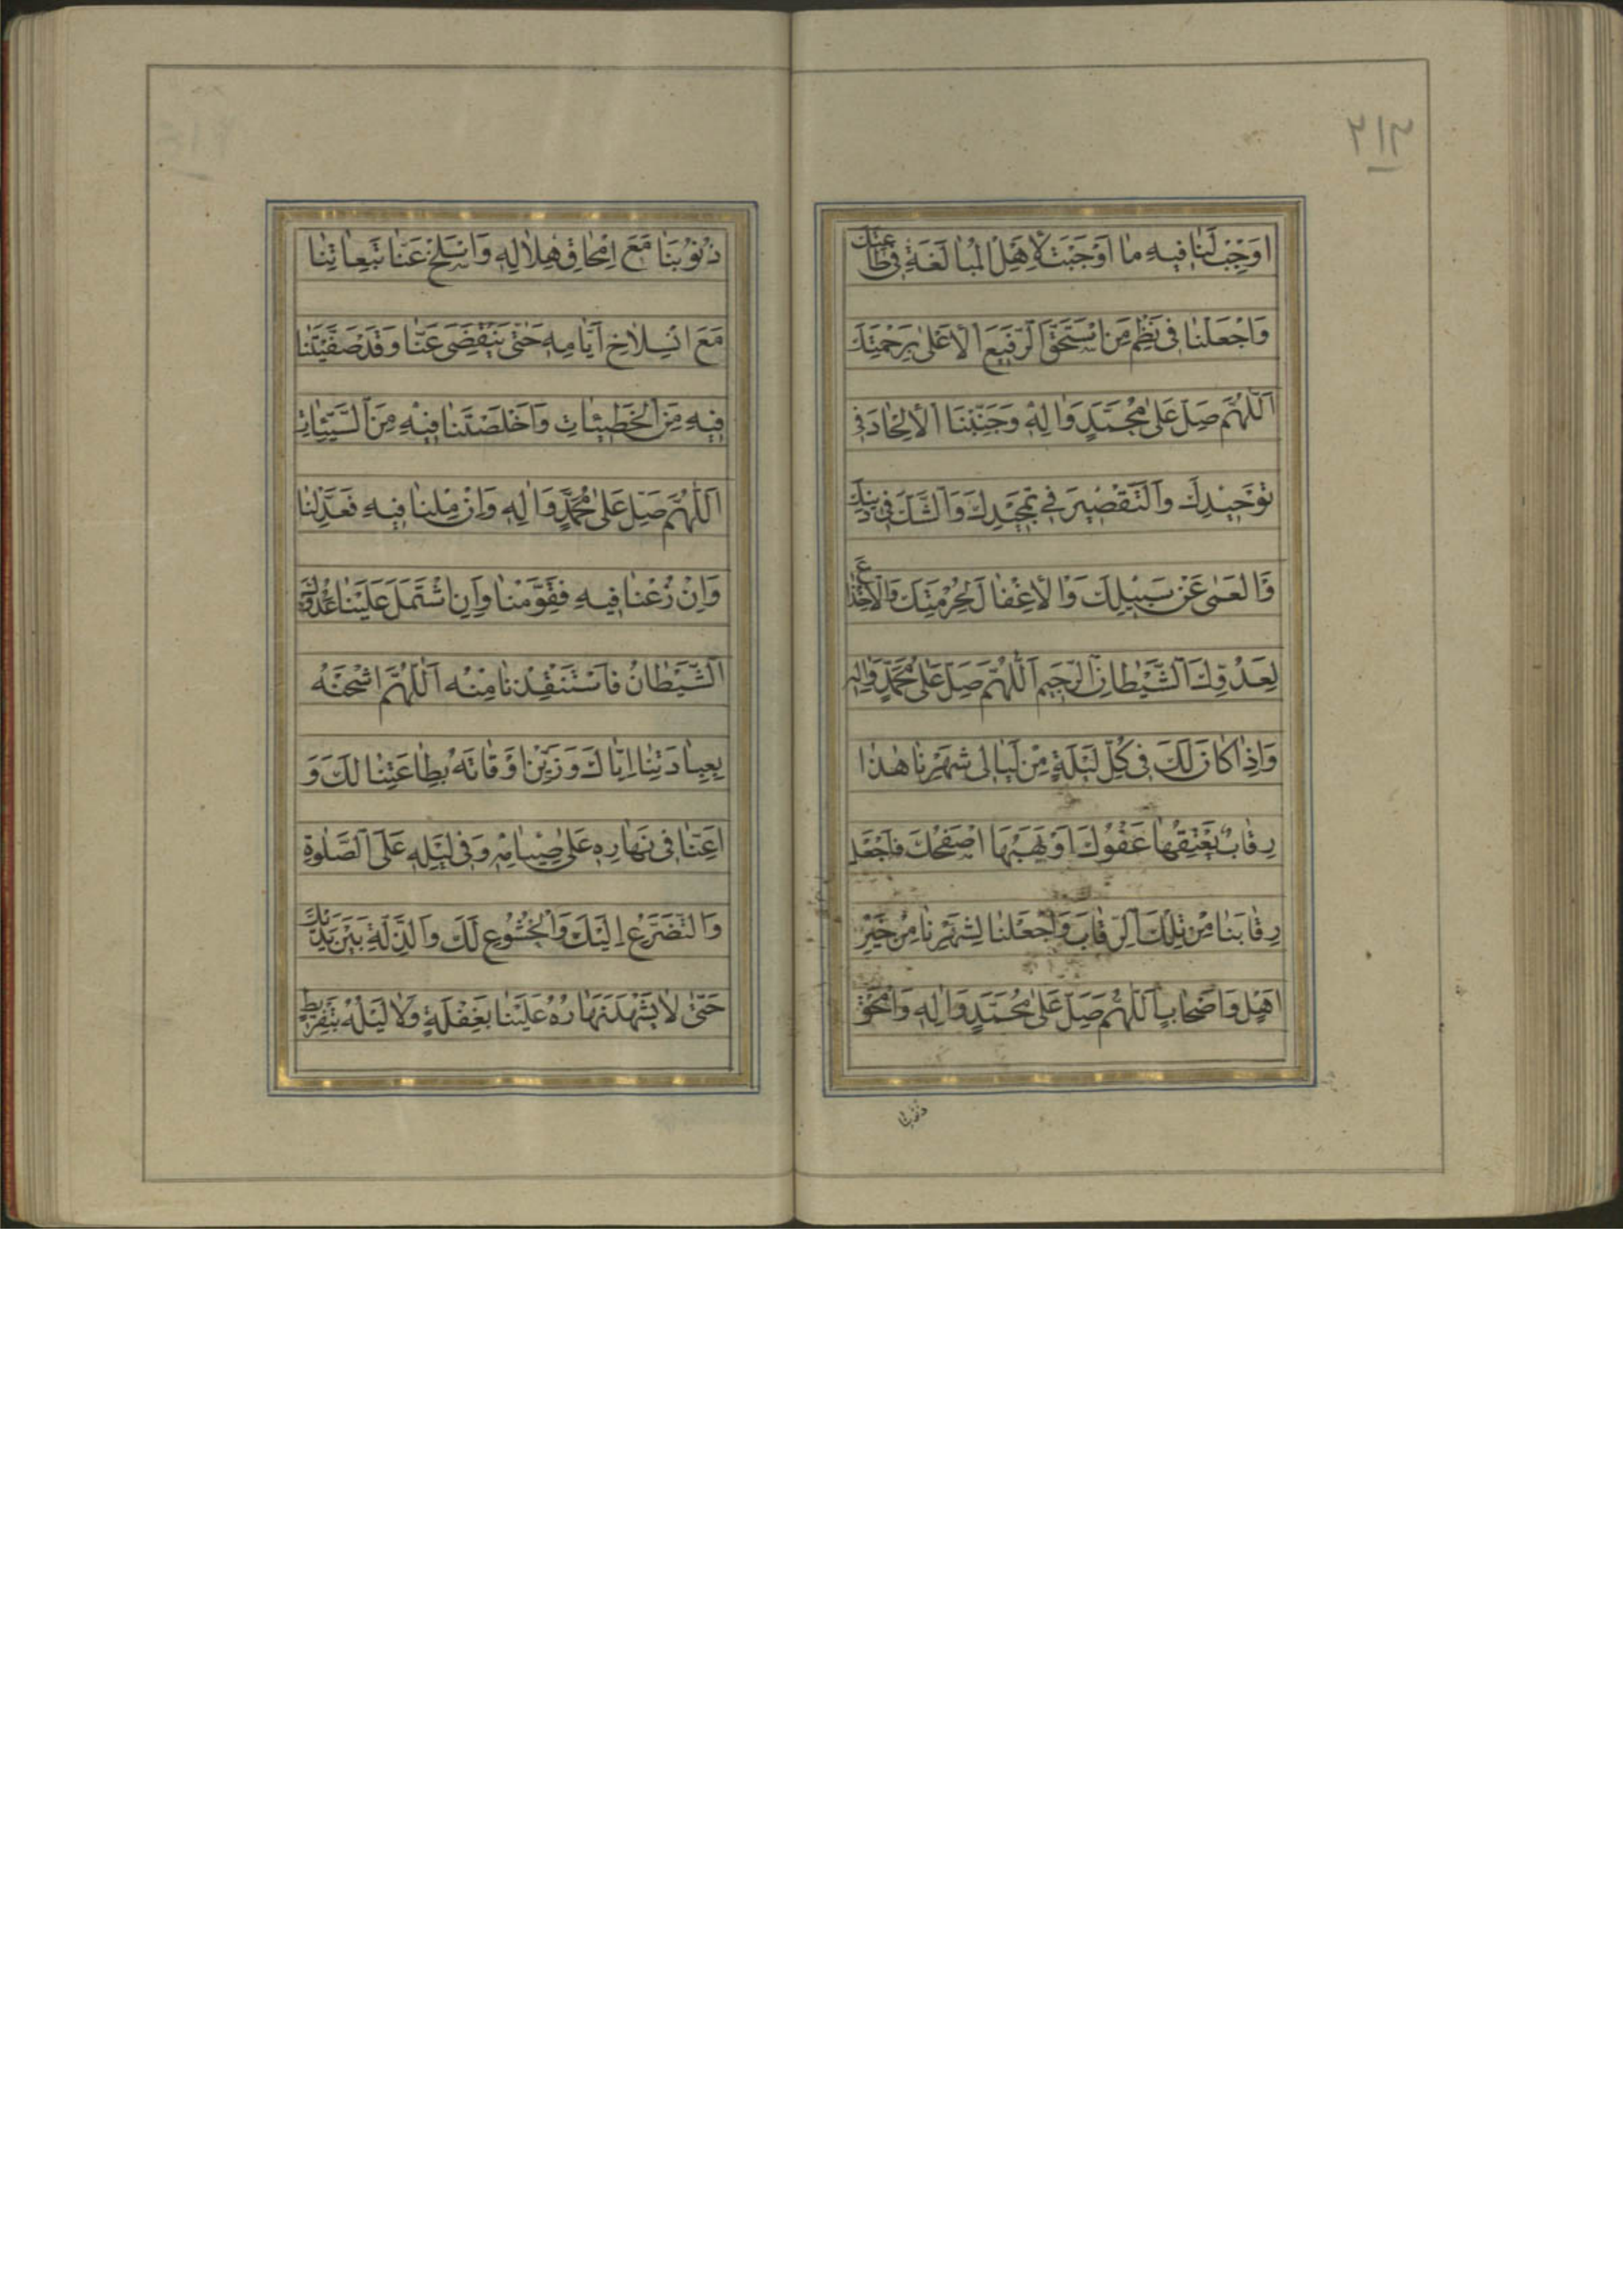 ٢١٣
اَوْجِبْ لَنا فيهِ ما اَوْجَبْتَ لِاَهْلِ الْمُبالَغَةِ في طاعَتِكَ
وَاجْعَلْنا في نَظْمِ مَنِ اسْتَحَقَّ الرَّفيعَ الْاَعْلى بِرَحْمَتِكَ
اَللّهُمَّ صَلِّ عَلى مُحَمَّدٍ وَالِهِ وَجَنِّبْنَا الْاِلْحادَ في
تَوْحيدِكَ وَالتَّقْصيرَ في تَمْجيدِكَ وَالشَّكَّ في دينِكَ
وَالْعَمى عَنْ سَبيلِكَ وَالْاِغْفالَ لِحُرْمَتِكَ وَالْاِنْخِداعَ
لِعَدُوِّكَ الشَّيْطانِ الرَّجيمِ اَللّهُمَّ صَلِّ عَلى مُحَمَّدٍ وَالِهِ
وَاِذا كانَ لَكَ في كُلِّ لَيْلَةٍ مِنْ لَيالي شَهْرِنا هذا
رِقابٌ يُعْتِقُها عَفْوُكَ اَوْ يَهَبُها صَفْحُكَ فَاجْعَلْ
رِقابَنا مِنْ تِلْكَ الرِّقابِ وَاجْعَلْنا لِشَهْرِنا مِنْ خَيْرِ
اَهْلٍ وَاَصْحابٍ اَللّهُمَّ صَلِّ عَلى مُحَمَّدٍ وَالِهِ وَامْحَقْ
ذنوبنا
ذُنُوبَنا مَعَ اِمْحاقِ هِلالِهِ وَاسْلَخْ عَنّا تَبِعاتِنا
مَعَ انْسِلاخِ اَيّامِهِ حَتّى يَنْقَضِيَ عَنّا وَقَدْ صَفَّيْتَنا
فيهِ مِنَ الْخَطيئاتِ وَاَخْلَصْتَنا فيهِ مِنَ السَّيِّئاتِ
اَللّهُمَّ صَلِّ عَلى مُحَمَّدٍ وَالِهِ وَاِنْ مِلْنا فيهِ فَعَدِّلْنا
وَاِنْ زُغْنا فيهِ فَقَوِّمْنا وَاِنِ اشْتَمَلَ عَلَيْنا عَدُوُّكَ
الشَّيْطانُ فَاسْتَنْقِذْنا مِنْهُ اَللّهُمَّ اشْحَنْهُ
بِعِبادَتِنا اِيّاكَ وَزَيِّنْ اَوْقاتَهُ بِطاعَتِنا لَكَ وَ
اَعِنّا في نَهارِهِ عَلى صِيامِهِ وَفي لَيْلِهِ عَلَى الصَّلوةِ
وَالتَّضَرُّعِ اِلَيْكَ وَالْخُشُوعِ لَكَ وَالذِّلَّةِ بَيْنَ يَدَيْكَ
حَتّى لا يَشْهَدَ نَهارُهُ عَلَيْنا بِغَفْلَةٍ وَلا لَيْلُهُ بِتَفْريطٍ